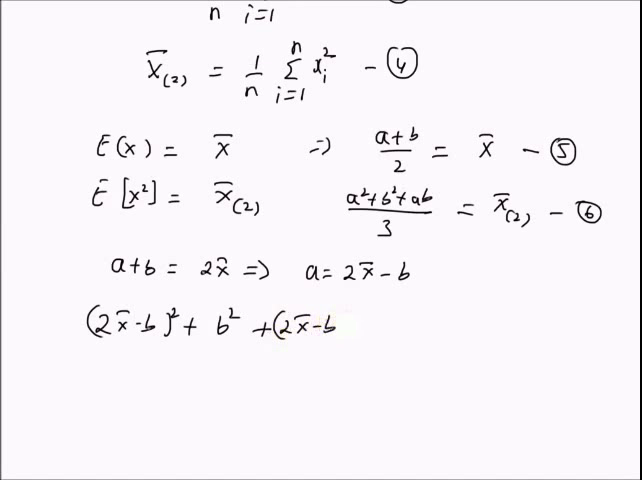 n i=1
x̄₍₂₎ = 1/n Σⁿᵢ₌₁ xᵢ² - ④
E(x) = x̄ ⇒ (a+b)/2 = x̄ - ⑤
E[x²] = x̄₍₂₎ (a²+b²+ab)/3 = x̄₍₂₎ - ⑥
a+b = 2x̄ ⇒ a = 2x̄-b
(2x̄-b)² + b² + (2x̄-b